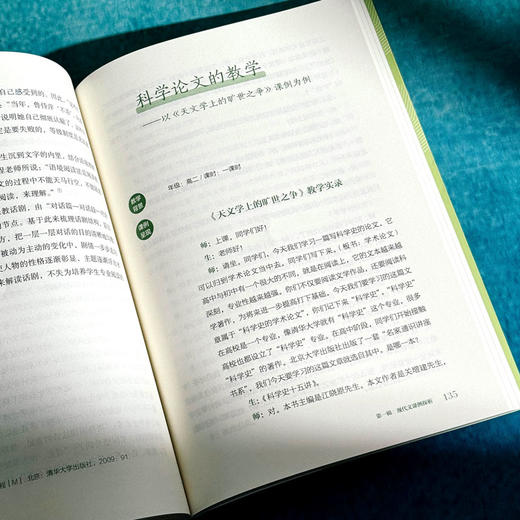 自己感受到的。因此，
“当年，鲁侍萍‘不
说明她自己彻底认输了，
定是要失败的，等级制度是
生沉到文字的内里，结合
程老师所说：“语境阅读法是
文的过程中不能天马行空，不
阅读，来理解。”
教话剧，由“对话篇—对话篇—
的节点。基于此来梳理话剧结构，
方，把一层一层对话的目的
被动为主动的变化中，剧情一
使人物的性格逐渐彰显，主题逐渐
来解读话剧，不失为培养学生专业
程［M］北京：清华大学出版社，2009：91.
科学论文的教学
——以《天文学上的旷世之争》课例为例
教学背景
年级：高二 / 课时：一课时
课例呈现
《天文学上的旷世之争》教学实录
师：上课，同学们好！
生：老师好！
师：请坐，同学们，今天我们学习一篇写科学史的论文，它
可以归到学术论文当中去，同学们写下来。（板书：学术论文）
高中与初中有一个很大的不同，就是在阅读上，它的文本越来越
深刻，专业性越来越强，你们不仅要阅读文学作品，还要阅读科
学著作，为将来进一步提高打下基础。今天我们要学习的这篇文
章属于“科学史的学术论文”，你们记下来“科学史”，“科学史”
在高校是一个专业，像清华大学就有“科学史”这个专业，很多
高校也都设立了“科学史”专业。在高中阶段，同学们开始接触
“科学史”的著作。北京大学出版社出版了一套“名家通识讲座
书系”，我们今天要学习的这篇文章就选自其中，是哪一本？
生：《科学史十五讲》。
师：对。本书主编是江晓原先生。本文作者是关增建先生。
第一辑 现代文课例探析 135